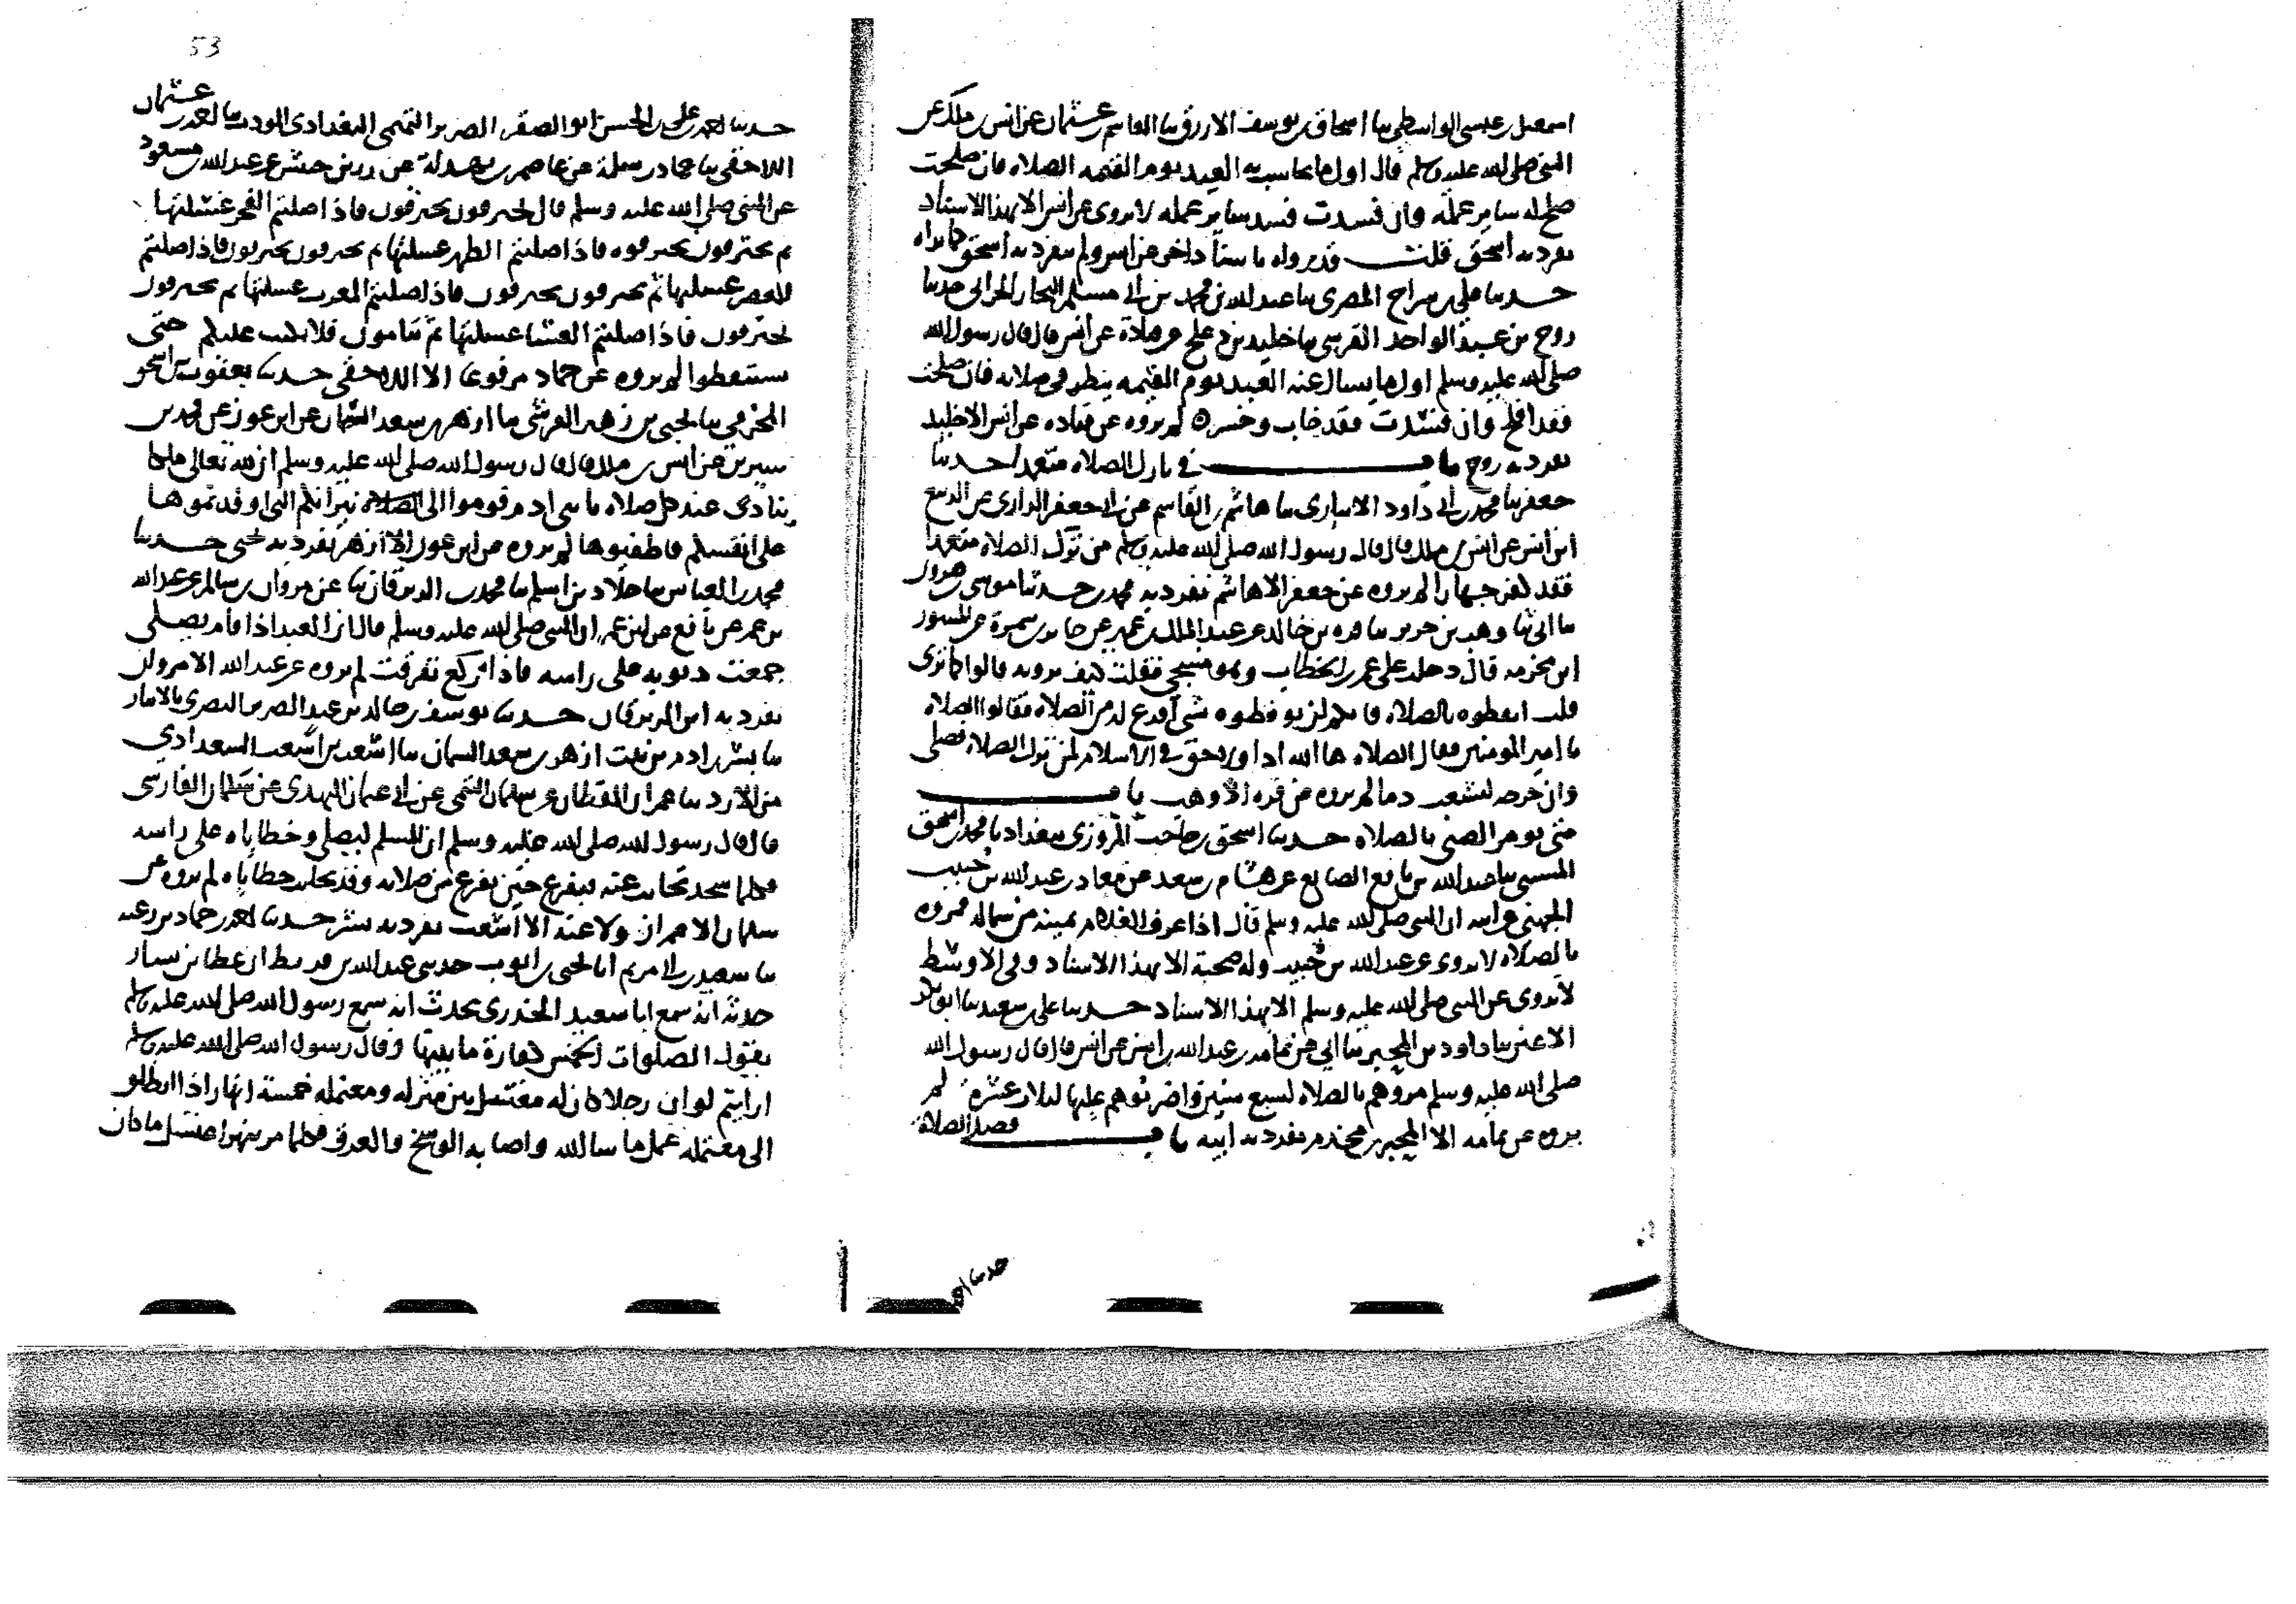 اسمعيل بن عيسى الواسطي ثنا اسحاق بن يوسف الازرق ثنا القاسم بن عثمان عن انس بن ملك عن
النبي صلى الله عليه وسلم قال اول ما يحاسب به العبد يوم القيمه الصلاه فان صلحت
صلح له ساير عمله وان فسدت فسد ساير عمله لا يروى عن انس الا بهذا الاسناد
تفرد به اسحق قلت قد رواه باسناد اخر عن انس ولم يتفرد به اسحق كما تراه
حدثنا علي بن سراج المصري ثنا عبد الله بن محمد بن ابي مسلم الحراني حدثنا
روح بن عبد الواحد القرشي ثنا خليد بن دعلج عن قتادة عن انس قال قال رسول الله
صلى الله عليه وسلم اول ما يسال عنه العبد يوم القيمه ينظر في صلاته فان صلحت
فقد افلح وان فسدت فقد خاب وخسر لم يروه عن قتاده عن انس الا خليد
تفرد به روح باب في تارك الصلاه متعمدا حدثنا
جعفر ثنا محمد بن ابي داود الانباري ثنا هاشم بن القاسم عن ابي جعفر الرازي عن الربيع
ابن انس عن انس بن ملك قال قال رسول الله صلى الله عليه وسلم من ترك الصلاه متعمدا
فقد كفر جهارا لم يروه عن جعفر الا هاشم تفرد به محمد حدثنا موسى بن هرون
ثنا ابي ثنا وهب بن جرير ثنا قره بن خالد عن عبد الملك بن عمير عن جابر بن سمرة عن المسور
ابن مخرمه قال دخلت على عمر بن الخطاب وهو مسجى فقلت كيف ترونه قالوا كما ترى
قلت ايقظوه بالصلاه فانكم لن توقظوه بشي افزع له من الصلاه فقالوا الصلاه
يا امير المومنين فقال الصلاه ها الله اذا ولا حق في الاسلام لمن ترك الصلاه فصلى
وان جرحه ليثعب دما لم يروه عن قره الا وهب باب
متى يومر الصبي بالصلاه حدثنا اسحق بن المروزي ببغداد ثنا محمد بن اسحق
المسيبي ثنا عبد الله بن نافع الصايغ عن هشام بن سعد عن معاذ بن عبد الله بن خبيب
الجهني عن ابيه ان النبي صلى الله عليه وسلم قال اذا عرف الغلام يمينه من شماله فمروه
بالصلاه لا يروى عن عبد الله بن خبيب وله صحبة الا بهذا الاسناد وفي الاوسط
لا يروى عن النبي صلى الله عليه وسلم الا بهذا الاسناد حدثنا علي بن سعيد ثنا ابو بكر
الاعين ثنا داود بن المحبر ثنا ابي عن ثمامه بن عبد الله بن انس عن انس قال قال رسول الله
صلى الله عليه وسلم مروهم بالصلاه لسبع سنين واضربوهم عليها لثلاث عشرة لم
يروه عن ثمامه الا المحبر بن مخذم تفرد به ابنه باب فضل الصلاة
حدثنا
53
حدثنا احمد بن علي بن الحسن ابو الصقر الضرير التميمي البغدادي المودب ثنا احمد بن عثمان
اللاحقي ثنا حماد بن سلمة عن عاصم بن بهدلة عن زر بن حبيش عن عبد الله بن مسعود
عن النبي صلى الله عليه وسلم قال تحترقون تحترقون فاذا صليتم الفجر غسلتها
ثم تحترقون تحترقون فاذا صليتم الظهر غسلتها ثم تحترقون تحترقون فاذا صليتم
العصر غسلتها ثم تحترقون تحترقون فاذا صليتم المغرب غسلتها ثم تحترقون
تحترقون فاذا صليتم العشا غسلتها ثم تنامون فلا يكتب عليكم حتى
تستيقظوا لم يروه عن حماد مرفوعا الا اللاحقي حدثنا يعقوب بن اسحق
المخرمي ثنا يحيى بن زهير القرشي ثنا ازهر بن سعد السمان عن ابن عون عن محمد بن
سيرين عن انس بن ملك قال قال رسول الله صلى الله عليه وسلم ان لله تعالى ملكا
ينادي عند كل صلاه يا بني ادم قوموا الى نيرانكم التي اوقدتموها
على انفسكم فاطفيوها لم يروه عن ابن عون الا ازهر تفرد به يحيى حدثنا
محمد بن العباس ثنا خلاد بن اسلم ثنا محمد بن الزبرقان ثنا عن مروان بن سالم عن عبد الله
بن عمر عن نافع عن ابن عمر ان النبي صلى الله عليه وسلم قال ان العبد اذا قام يصلي
جمعت ذنوبه على راسه فاذا ركع تفرقت لم يروه عن عبد الله الا مروان
تفرد به ابن الزبرقان حدثنا يوسف بن خالد بن عبد الضرير البصري
ثنا بشر بن ادم بن بنت ازهر بن سعد السمان ثنا اشعث بن اشعث السعداني
من الازد ثنا عمران القطان عن سليمان التيمي عن ابي عثمان النهدي عن سلمان الفارسي
قال قال رسول الله صلى الله عليه وسلم ان المسلم ليصلي وخطاياه على راسه
فكلما سجد تحاتت عنه فيفرغ حين يفرغ من صلاته وقد تحاتت خطاياه لم يروه عن
سليمان الا عمران ولا عنه الا اشعث تفرد به بشر حدثنا احمد بن حماد بن زغبه
ثنا سعيد بن ابي مريم انا يحيى بن ايوب حدثني عبد الله بن قريط ان عطا بن يسار
حدثه انه سمع ابا سعيد الخدري يحدث انه سمع رسول الله صلى الله عليه وسلم
يقول الصلوات الخمس كفارة ما بينها وقال رسول الله صلى الله عليه وسلم
ارايتم لو ان رجلا كان له مغتسل بين منزله ومعتمله خمسة انهار اذا انطلق
الى معتمله عمل ما شا الله واصابه الوسخ والعرق فكلما مر بنهر اغتسل ما كان